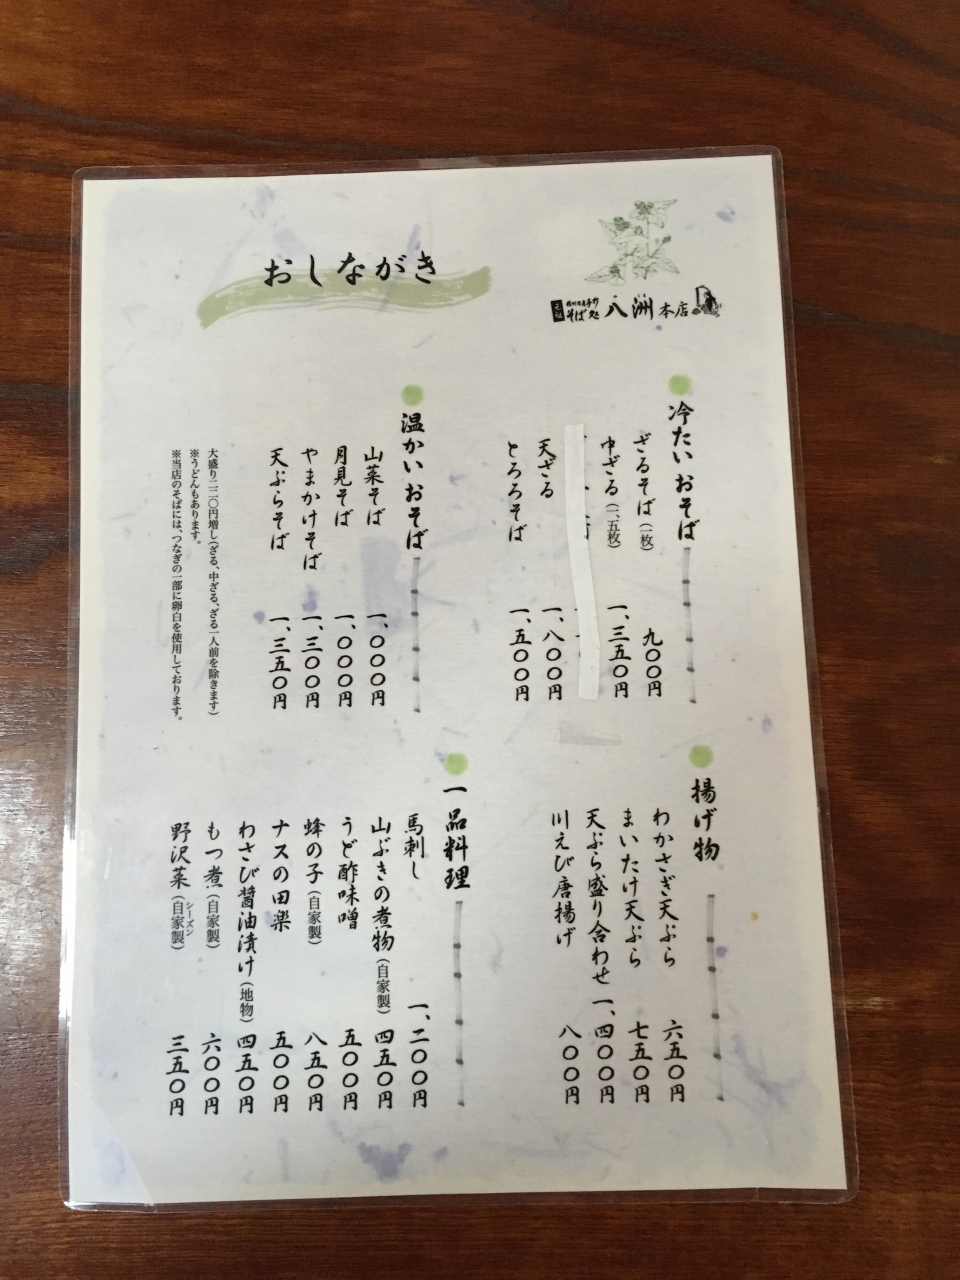 おしながき
そば処 八洲 本店
冷たいおそば
ざるそば(一枚) 九〇〇円
中ざる(一、五枚) 一、三五〇円
天ざる 一、八〇〇円
とろろそば 一、五〇〇円
温かいおそば
山菜そば 一、〇〇〇円
月見そば 一、〇〇〇円
やまかけそば 一、三〇〇円
天ぷらそば 一、三五〇円
大盛り二二〇円増し(ざる、中ざる、ざる一人前を除きます)
※うどんもあります。
※当店のそばには、つなぎの一部に卵白を使用しております。
揚げ物
わかさぎ天ぷら 六五〇円
まいたけ天ぷら 七五〇円
天ぷら盛り合わせ 一、四〇〇円
川えび唐揚げ 八〇〇円
一品料理
馬刺し 一、二〇〇円
山ぶきの煮物(自家製) 四五〇円
うど酢味噌 五〇〇円
蜂の子(自家製) 八五〇円
ナスの田楽 五〇〇円
わさび醤油漬け(地物) 四五〇円
もつ煮(自家製) 六〇〇円
野沢菜(自家製) シーズン 三五〇円